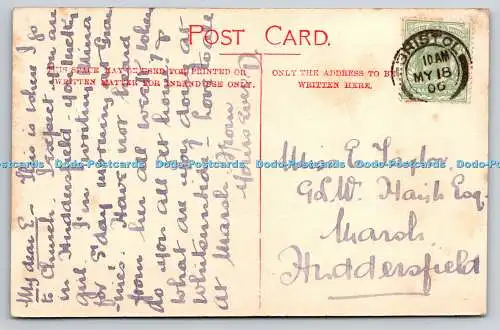 POST CARD.
THIS SPACE MAY BE USED FOR PRINTED OR
WRITTEN MATTER FOR INLAND USE ONLY.
ONLY THE ADDRESS TO BE
WRITTEN HERE.
BRISTOL
10 AM
MY 18
06
My dear E – This is where I go
to Church. I expect you are
in Huddersfield – you lucky
girl I'm writing
for S'day morning
Have not heard
from her all week. When
do you all go home? &
what are they doing at
Whitsuntide – Love to all
at Marsh. From
Yours Ever D.
Miss E Taylor
G.W. Haigh Esq.
Marsh
Huddersfield
Dodo-Postcards Dodo-Postcards Dodo-Postcards Dodo-Postcards